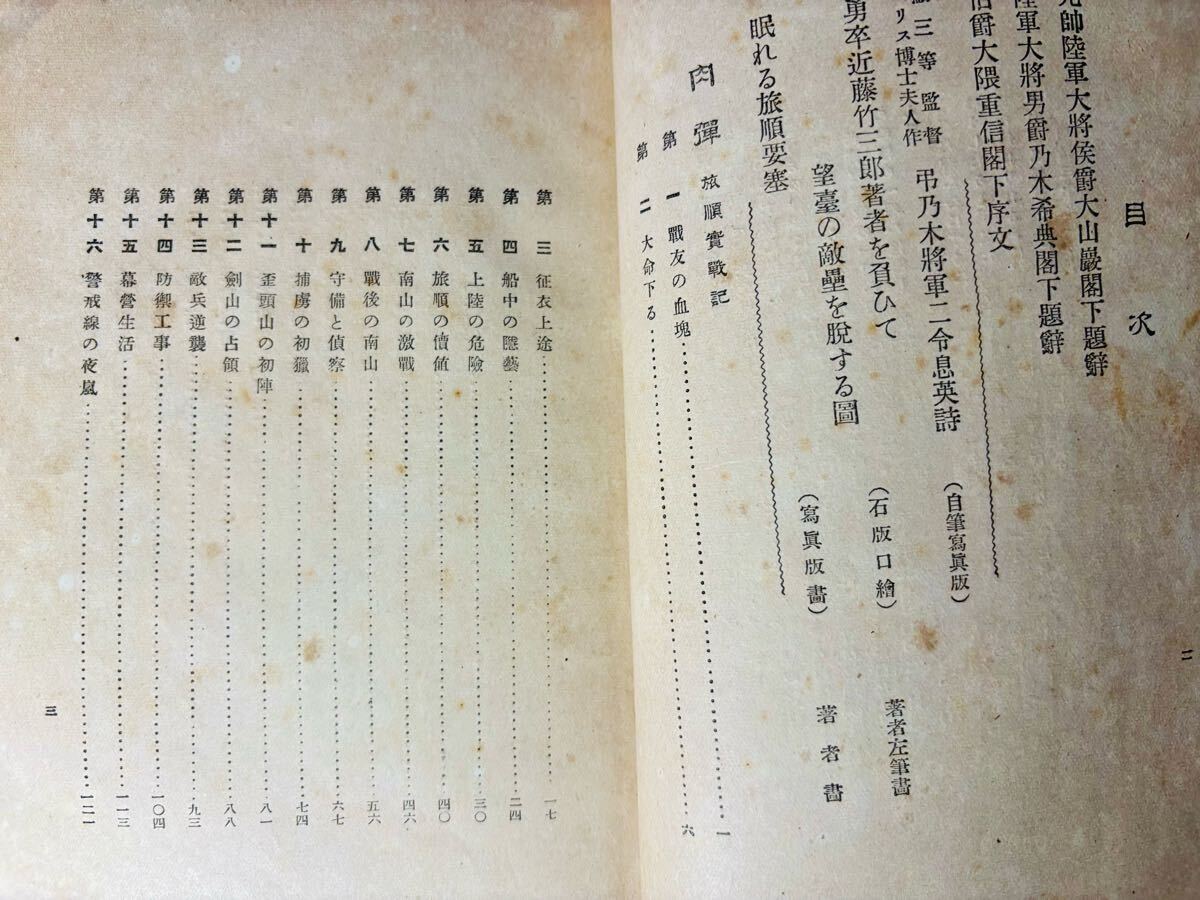 目次
元帥陸軍大將侯爵大山巖閣下題辭
陸軍大將男爵乃木希典閣下題辭
伯爵大隈重信閣下序文
三等監督
リス博士夫人作
弔乃木將軍二令息英詩
(自筆寫眞版)
勇卒近藤竹三郎著者を負ひて
望臺の敵壘を脫する圖
(石版口繪)
著者左筆畵
眠れる旅順要塞
(寫眞版畵)
著者畵
肉彈 旅順實戰記
第一 戰友の血塊 一
第二 大命下る 六
二
第三 征衣上途 一七
第四 船中の隱藝 二四
第五 上陸の危險 三〇
第六 旅順の價値 四〇
第七 南山の激戰 四六
第八 戰後の南山 五六
第九 守備と偵察 六七
第十 捕虜の初獵 七四
第十一 歪頭山の初陣 八一
第十二 劍山の占領 八八
第十三 敵兵逆襲 九三
第十四 防禦工事 一〇四
第十五 幕營生活 一一三
第十六 警戒線の夜嵐 一二一
三